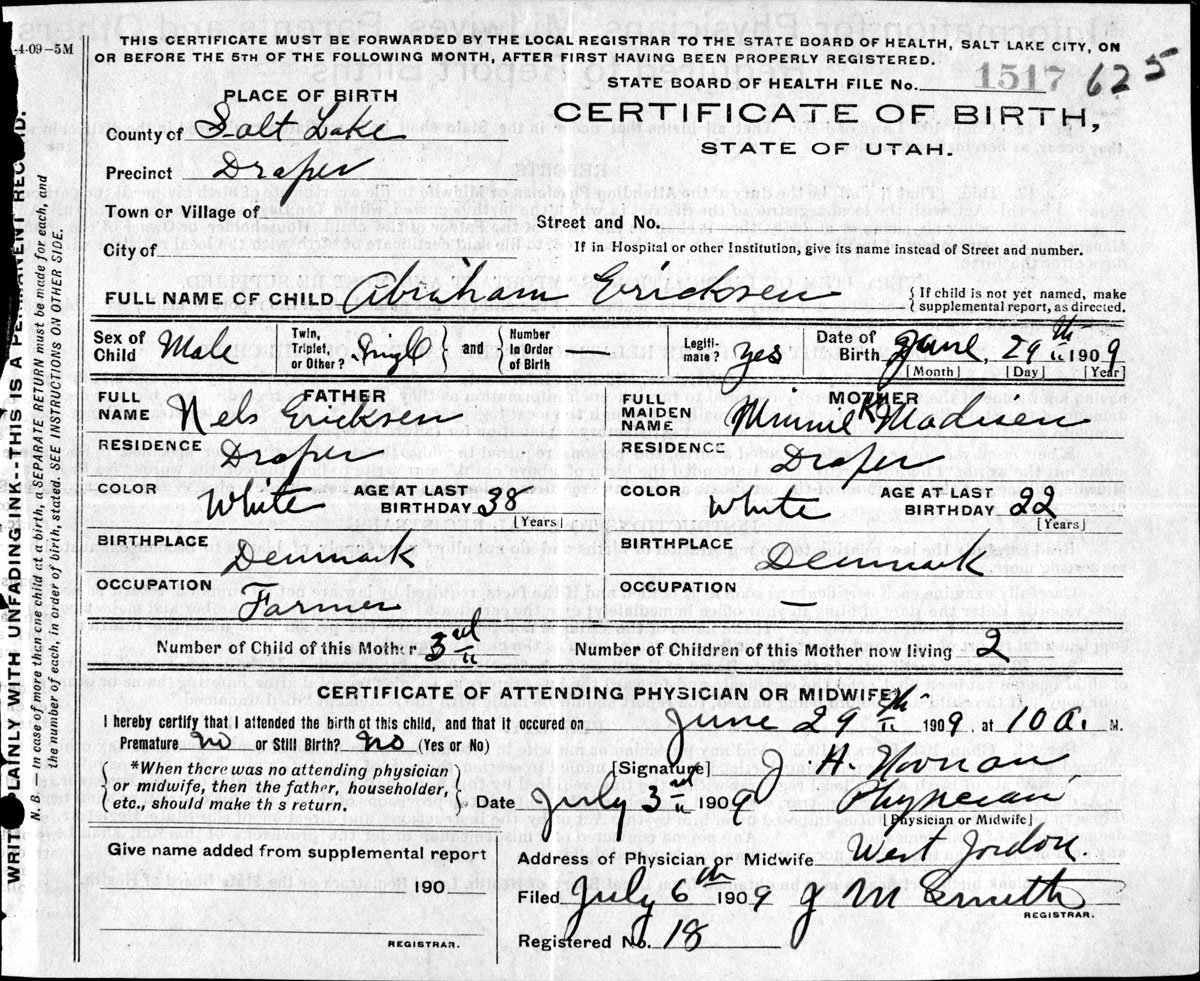 -4-09-5M
THIS CERTIFICATE MUST BE FORWARDED BY THE LOCAL REGISTRAR TO THE STATE BOARD OF HEALTH, SALT LAKE CITY, ON
OR BEFORE THE 5TH OF THE FOLLOWING MONTH, AFTER FIRST HAVING BEEN PROPERLY REGISTERED.
STATE BOARD OF HEALTH FILE No. 1517 625
PLACE OF BIRTH
CERTIFICATE OF BIRTH,
STATE OF UTAH.
County of Salt Lake
Precinct Draper
Town or Village of
Street and No.
City of
If in Hospital or other Institution, give its name instead of Street and number.
FULL NAME OF CHILD Abraham Ericksen {If child is not yet named, make supplemental report, as directed.
Sex of Child Male Twin, Triplet, or Other? Singl } and { Number in Order of Birth Legiti- mate? Yes Date of Birth June, 29th 1909
[Month] [Day] [Year]
FATHER MOTHER
FULL NAME Nels Ericksen FULL MAIDEN NAME Minnie K Madisen
RESIDENCE Draper RESIDENCE Draper
COLOR White AGE AT LAST BIRTHDAY 38 [Years] COLOR White AGE AT LAST BIRTHDAY 22 [Years]
BIRTHPLACE Denmark BIRTHPLACE Denmark
OCCUPATION Farmer OCCUPATION
Number of Child of this Mother 3rd Number of Children of this Mother now living 2
CERTIFICATE OF ATTENDING PHYSICIAN OR MIDWIFE
I hereby certify that I attended the birth of this child, and that it occured on June 29th 1909, at 10 a. M.
Premature no or Still Birth? no (Yes or No)
{*When there was no attending physician or midwife, then the father, householder, etc., should make th s return.}
[Signature] J. H.
Date July 3rd 1909 Physician
[Physician or Midwife]
Give name added from supplemental report
190
REGISTRAR.
Address of Physician or Midwife West Jordon.
Filed July 6th 1909 J M Smith
REGISTRAR.
Registered No. 18
WRITE PLAINLY WITH UNFADING INK--THIS IS A PERMANENT RECORD.
N. B.—In case of more than one child at a birth, a SEPARATE RETURN must be made for each, and
the number of each, in order of birth, stated. SEE INSTRUCTIONS ON OTHER SIDE.